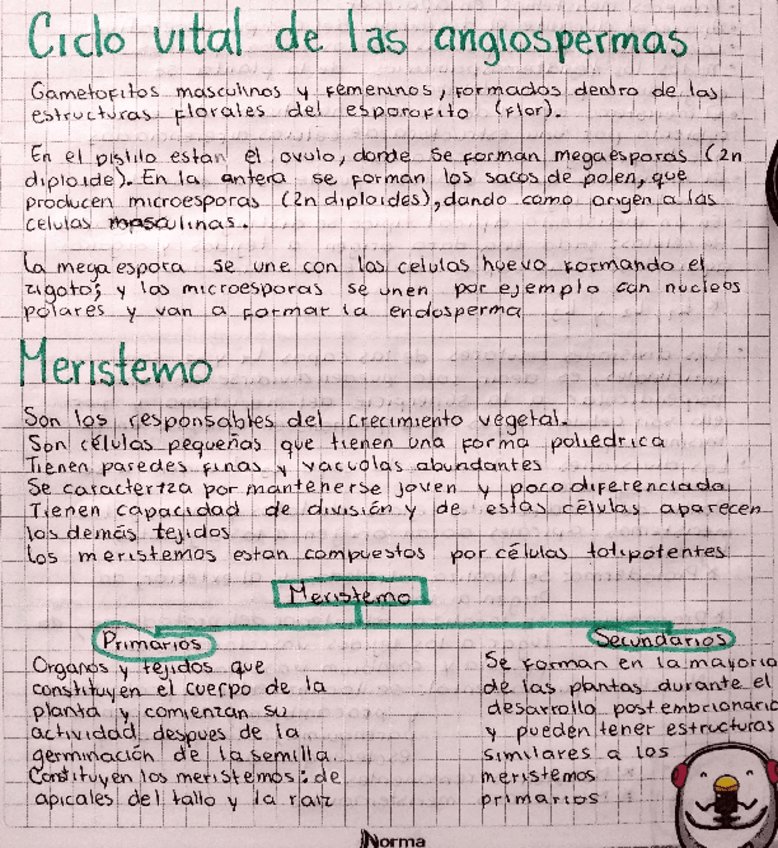 Ciclo vital de las angiospermas
Gametofitos masculinos y femeninos, formados dentro de las
estructuras florales del esporofito (flor).
En el pistilo estan el ovulo, donde se forman megaesporas (2n
diploide). En la antera se forman los sacos de polen, que
producen microesporas (2n diploides), dando como origen a las
celulas masculinas.
La megaespora se une con las celulas huevo formando el
zigoto; y las microesporas se unen por ejemplo con nucleos
polares y van a formar la endosperma
Meristemo
Son los responsables del crecimiento vegetal.
Son células pequeñas que tienen una forma poliédrica
Tienen paredes finas y vacuolas abundantes
Se caracteriza por mantenerse joven y poco diferenciada
Tienen capacidad de división y de estas células aparecen
los demás tejidos
Los meristemos estan compuestos por células totipotentes
Meristemo
Primarios
Organos y tejidos que
constituyen el cuerpo de la
planta y comienzan su
actividad despues de la
germinación de la semilla.
Constituyen los meristemos: de
apicales del tallo y la raíz
Secundarios
Se forman en la mayoria
de las plantas durante el
desarrollo postembrionario
y pueden tener estructuras
similares a los
meristemos
primarios
Norma